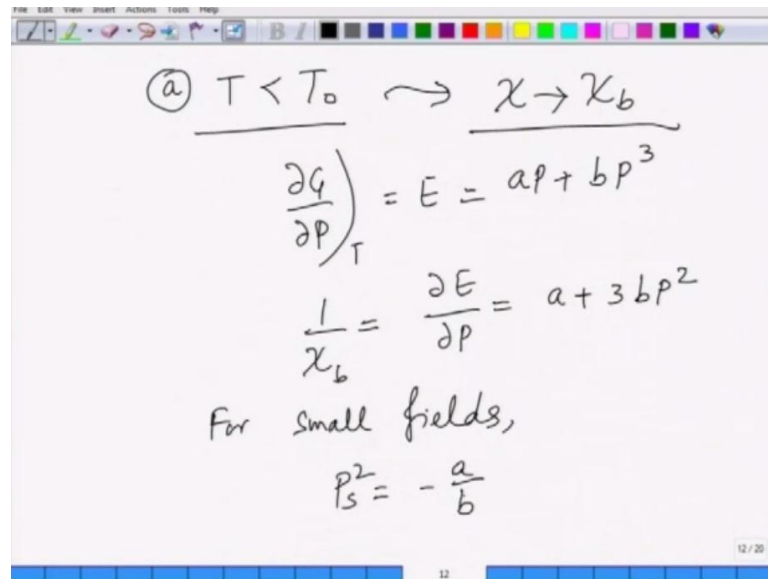 File Edit View Insert Actions Tools Help
B I
ⓐ T < T₀ ⇝ χ → χ_b
∂G/∂P)_T = E = aP + bP³
1/χ_b = ∂E/∂P = a + 3bP²
For small fields,
P_s² = - a/b
12 / 20
12